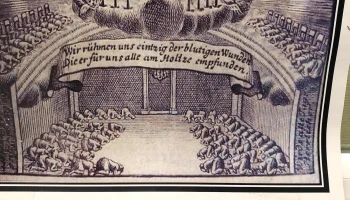 Wir rühmen uns eintzig der blutigen Wunden
Die er für uns alle am Holtze empfunden.